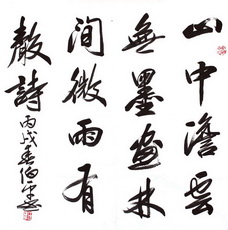 山中澹雲
無墨畫林
澗微雨有
聲詩
丙戌春伯平書